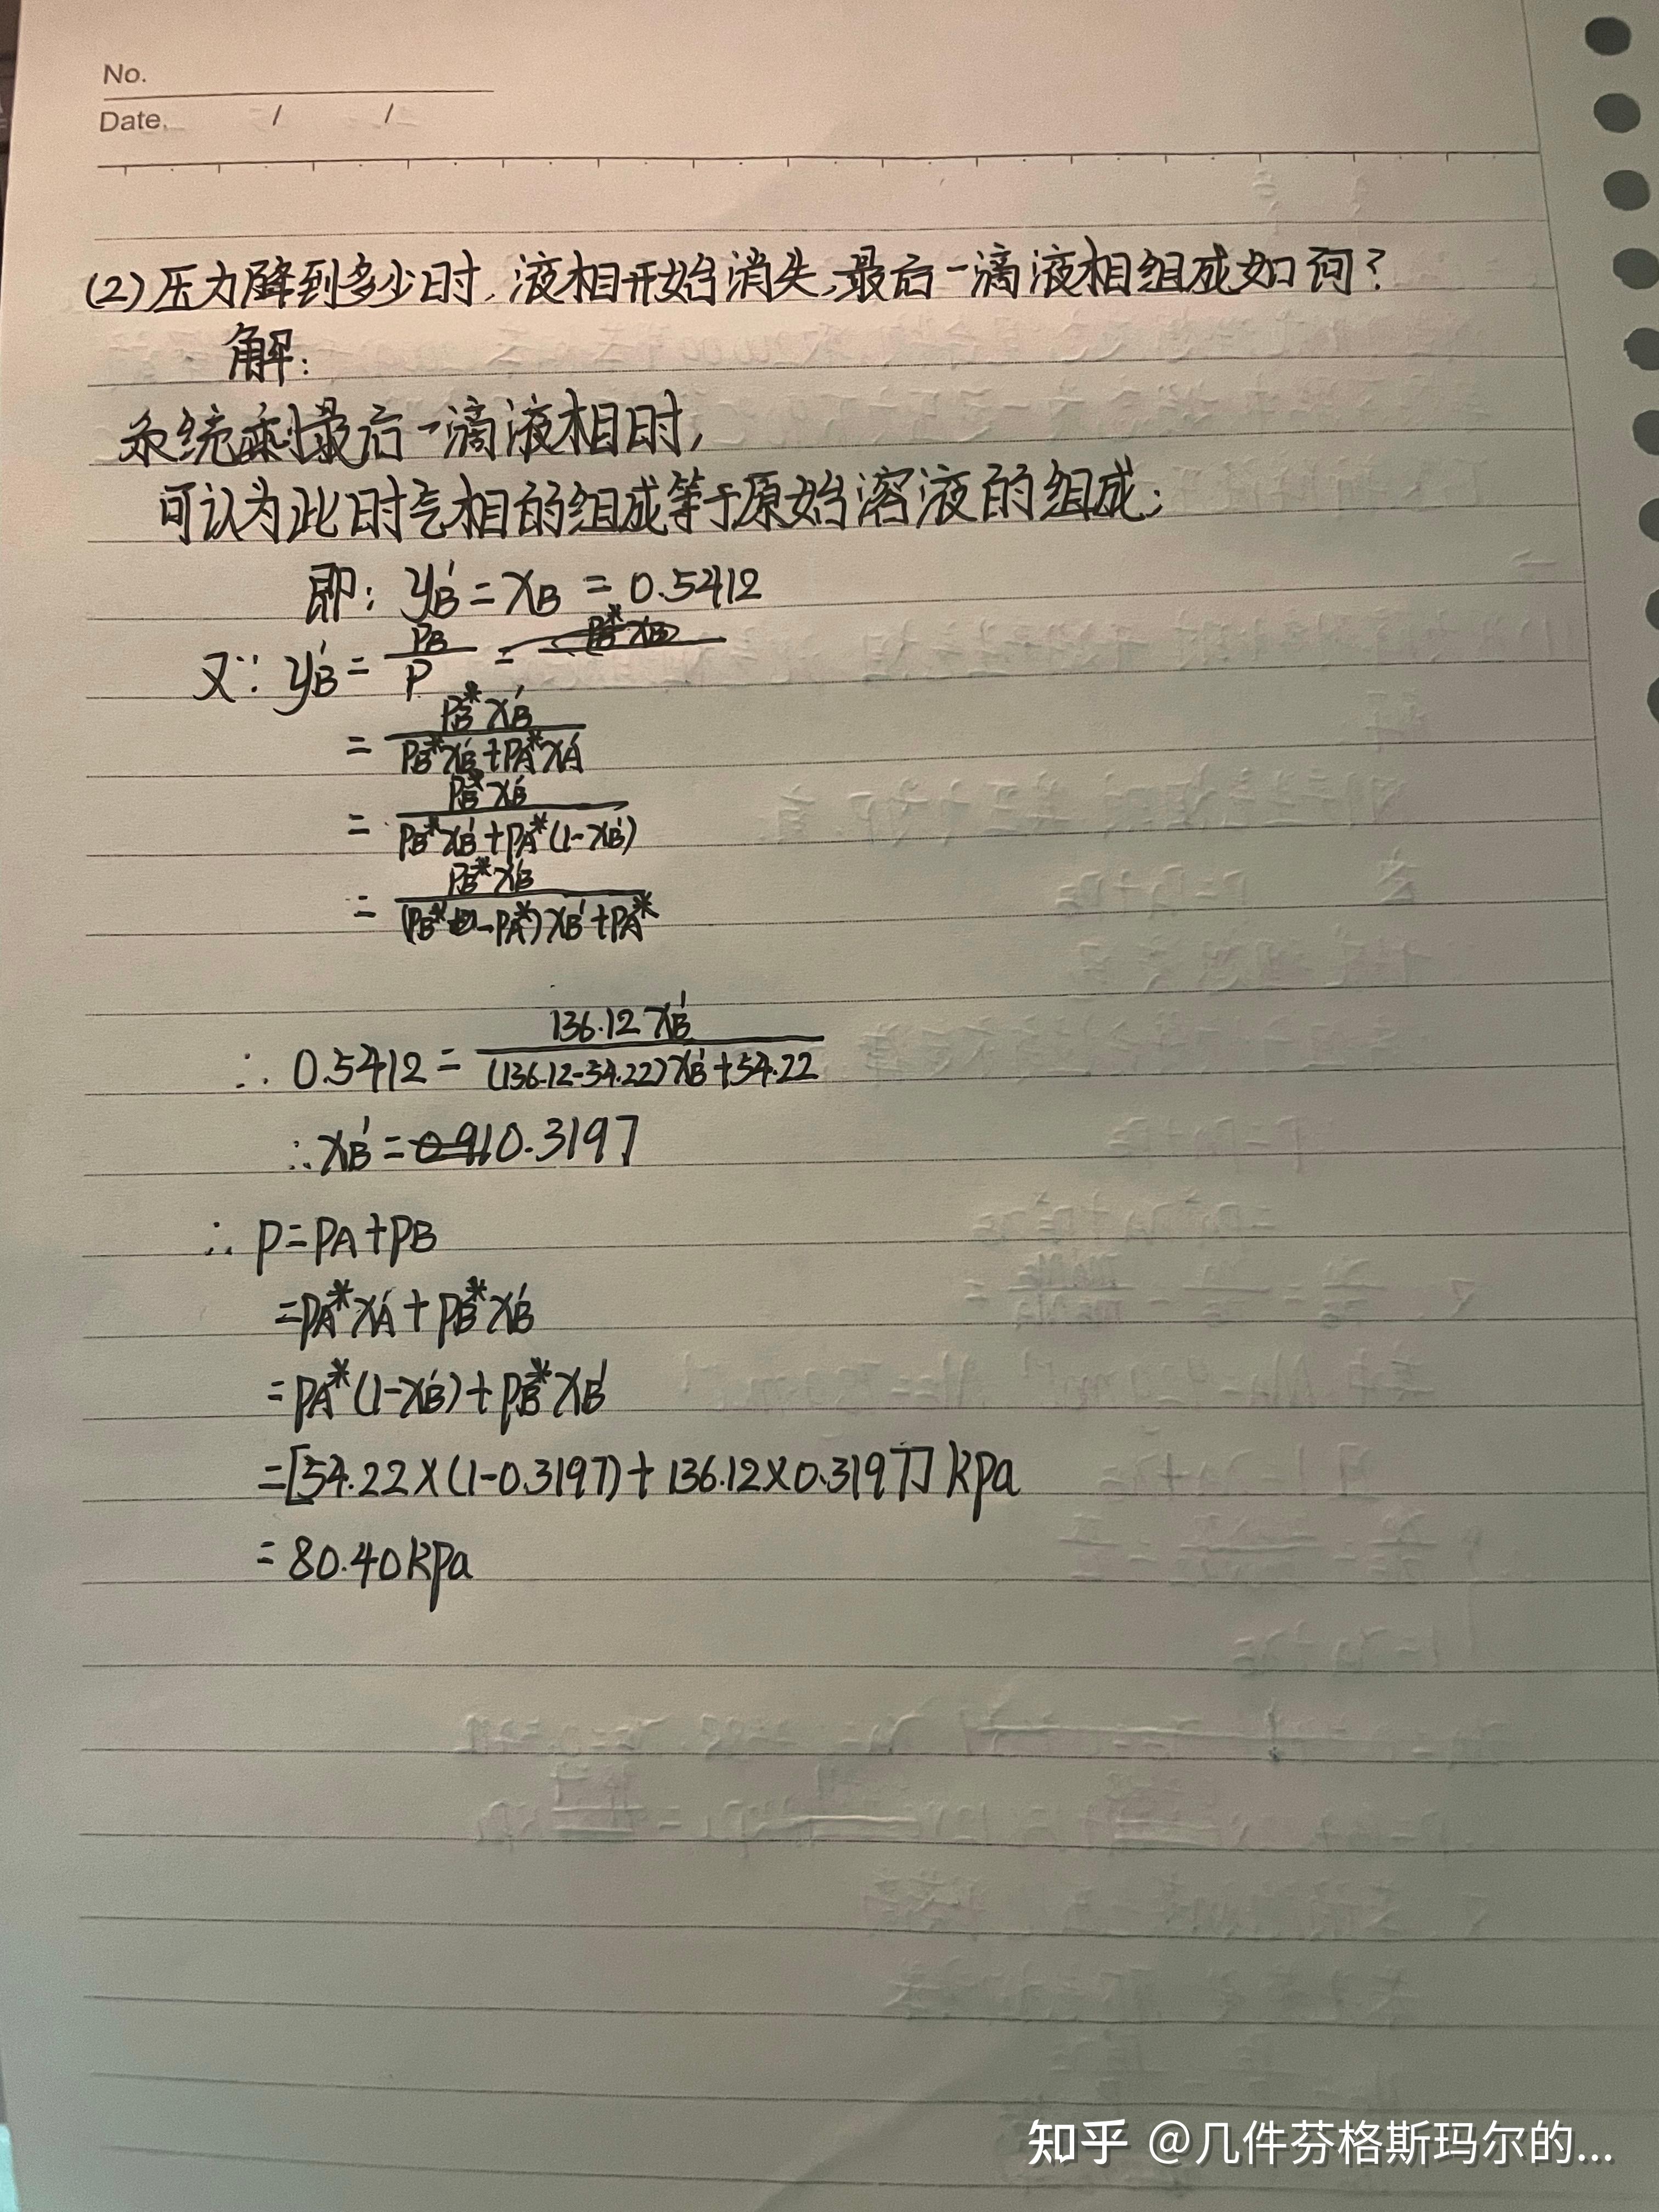 No.
Date. / /
(2)压力降到多少时,液相开始消失,最后一滴液相组成如何?
解:
系统剩最后一滴液相时,
可认为此时气相的组成等于原始溶液的组成;
即: yB' = xB = 0.5412
又∵ yB' = pB/p =
= pB* xB' / (pB* xB' + pA* xA')
= pB* xB' / (pB* xB' + pA*(1-xB'))
= pB* xB' / ((pB* - pA*) xB' + pA*)
∴ 0.5412 = 136.12 xB' / ((136.12-54.22) xB' + 54.22)
∴ xB' = 0.3197
∴ p = pA + pB
= pA* xA' + pB* xB'
= pA*(1-xB') + pB* xB'
= [54.22×(1-0.3197) + 136.12×0.3197] kpa
= 80.40 kpa
知乎 @几件芬格斯玛尔的...